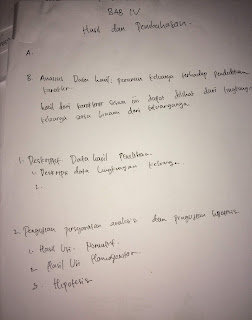 BAB IV
Hasil dan Pembahasan.
A.
B. Analisis Data hasil peranan keluarga terhadap pendidikan
karakter.
hasil dari karakter siswa ini dapat dilihat dari lingkungan
keluarga
1. Deskriptif Data hasil Penelitian.
1. Deskripsi data Lingkungan keluarga
2.
2. Pengujian persyaratan analisis dan pengujian hipotesis
1. Hasil Uji
2. Hasil Uji
3. Hipotesis